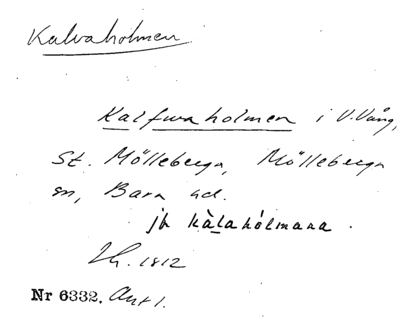 Kalvaholmen
Kalfwaholmen i V. Vång,
St. Mölleberga, Mölleberga
sn, Bara hd.
jfr kàlahólmana.
Lh. 1812
Nr 6332. Akt 1.